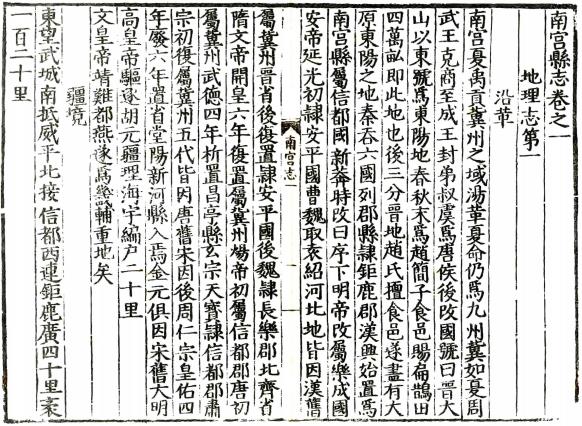 南宮縣志卷之一
地理志第一
沿革
南宮夏禹貢冀州之域湯革夏命仍爲九州冀如夏周
武王克商至成王封弟叔虞爲唐侯後改國號曰晉大
山以東號爲東陽地春秋末爲趙簡子食邑賜扁鵲田
四萬畝即此地也後三分晉地趙氏擅食邑遂盡有大
原東陽之地秦吞六國列郡縣隸鉅鹿郡漢興始置爲
南宮縣屬信都國新莽時改曰序下明帝改屬樂成國
安帝延光初隸安平國曹魏取袁紹河北地皆因漢舊
南宮志
一
屬冀州晉省後復置隸安平國後魏隸長樂郡北齊省
隋文帝開皇六年復置屬冀州煬帝初屬信都郡唐初
屬冀州武德四年析置昌亭縣玄宗天寶隸信都郡肅
宗初復屬冀州五代皆因唐舊宋因後周仁宗皇佑四
年廢六年置省堂陽新河縣入焉金元俱因宋舊大明
高皇帝驅逐胡元疆理海宇編户二十里
文皇帝靖難都燕遂爲畿輔重地矣
疆境
東望武城南抵威平北接信都西連鉅鹿廣四十里袤
一百二十里